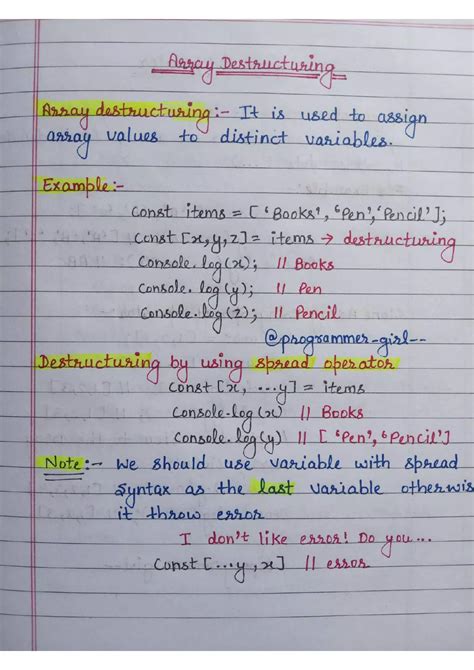 Array Destructuring
Array destructuring :- It is used to assign
array values to distinct variables.
Example:-
Const items = [ 'Books', 'Pen', 'Pencil' ];
Const [x,y,z] = items → destructuring
Console.log(x); // Books
Console.log(y); // Pen
Console.log(z); // Pencil
@programmer-girl--
Destructuring by using spread operator
Const [x, ...y] = items
Console.log(x) // Books
Console.log(y) // [ 'Pen', 'Pencil' ]
Note :- We should use variable with spread
Syntax as the last variable otherwis
it throw error
I don't like error! Do you...
Const [...y, x] // error